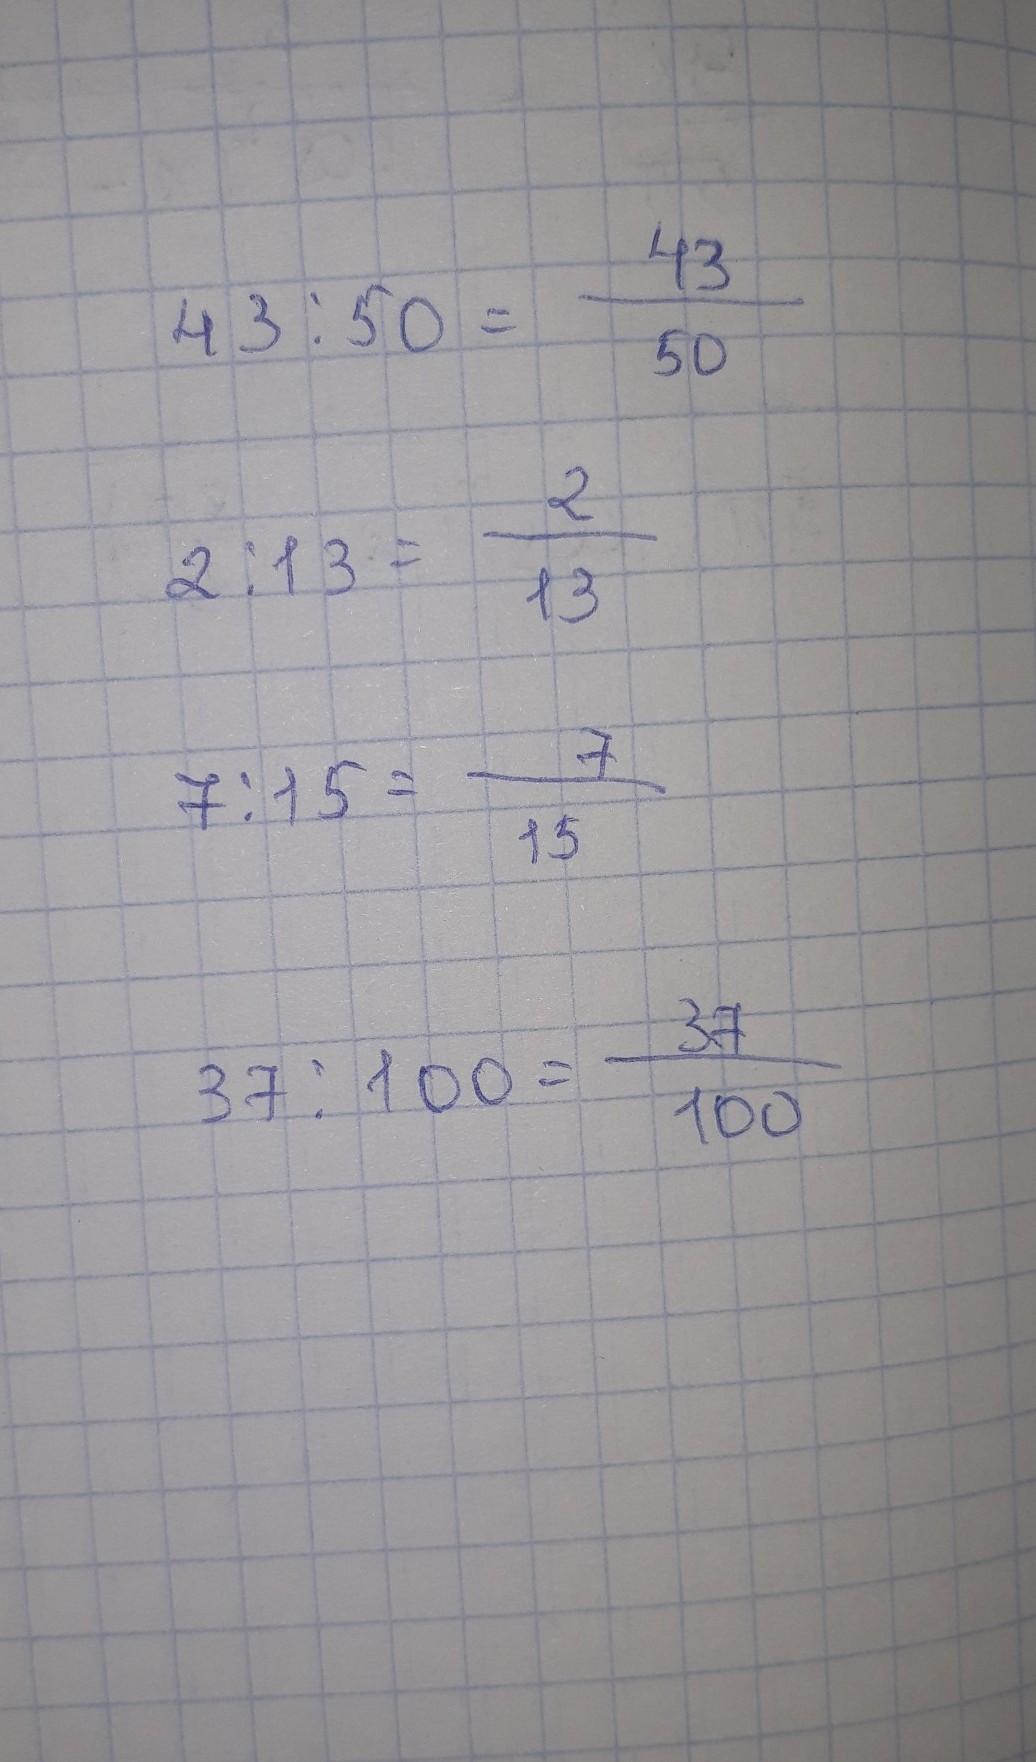 43:50 = 43/50
2:13 = 2/13
7:15 = 7/15
37:100 = 37/100